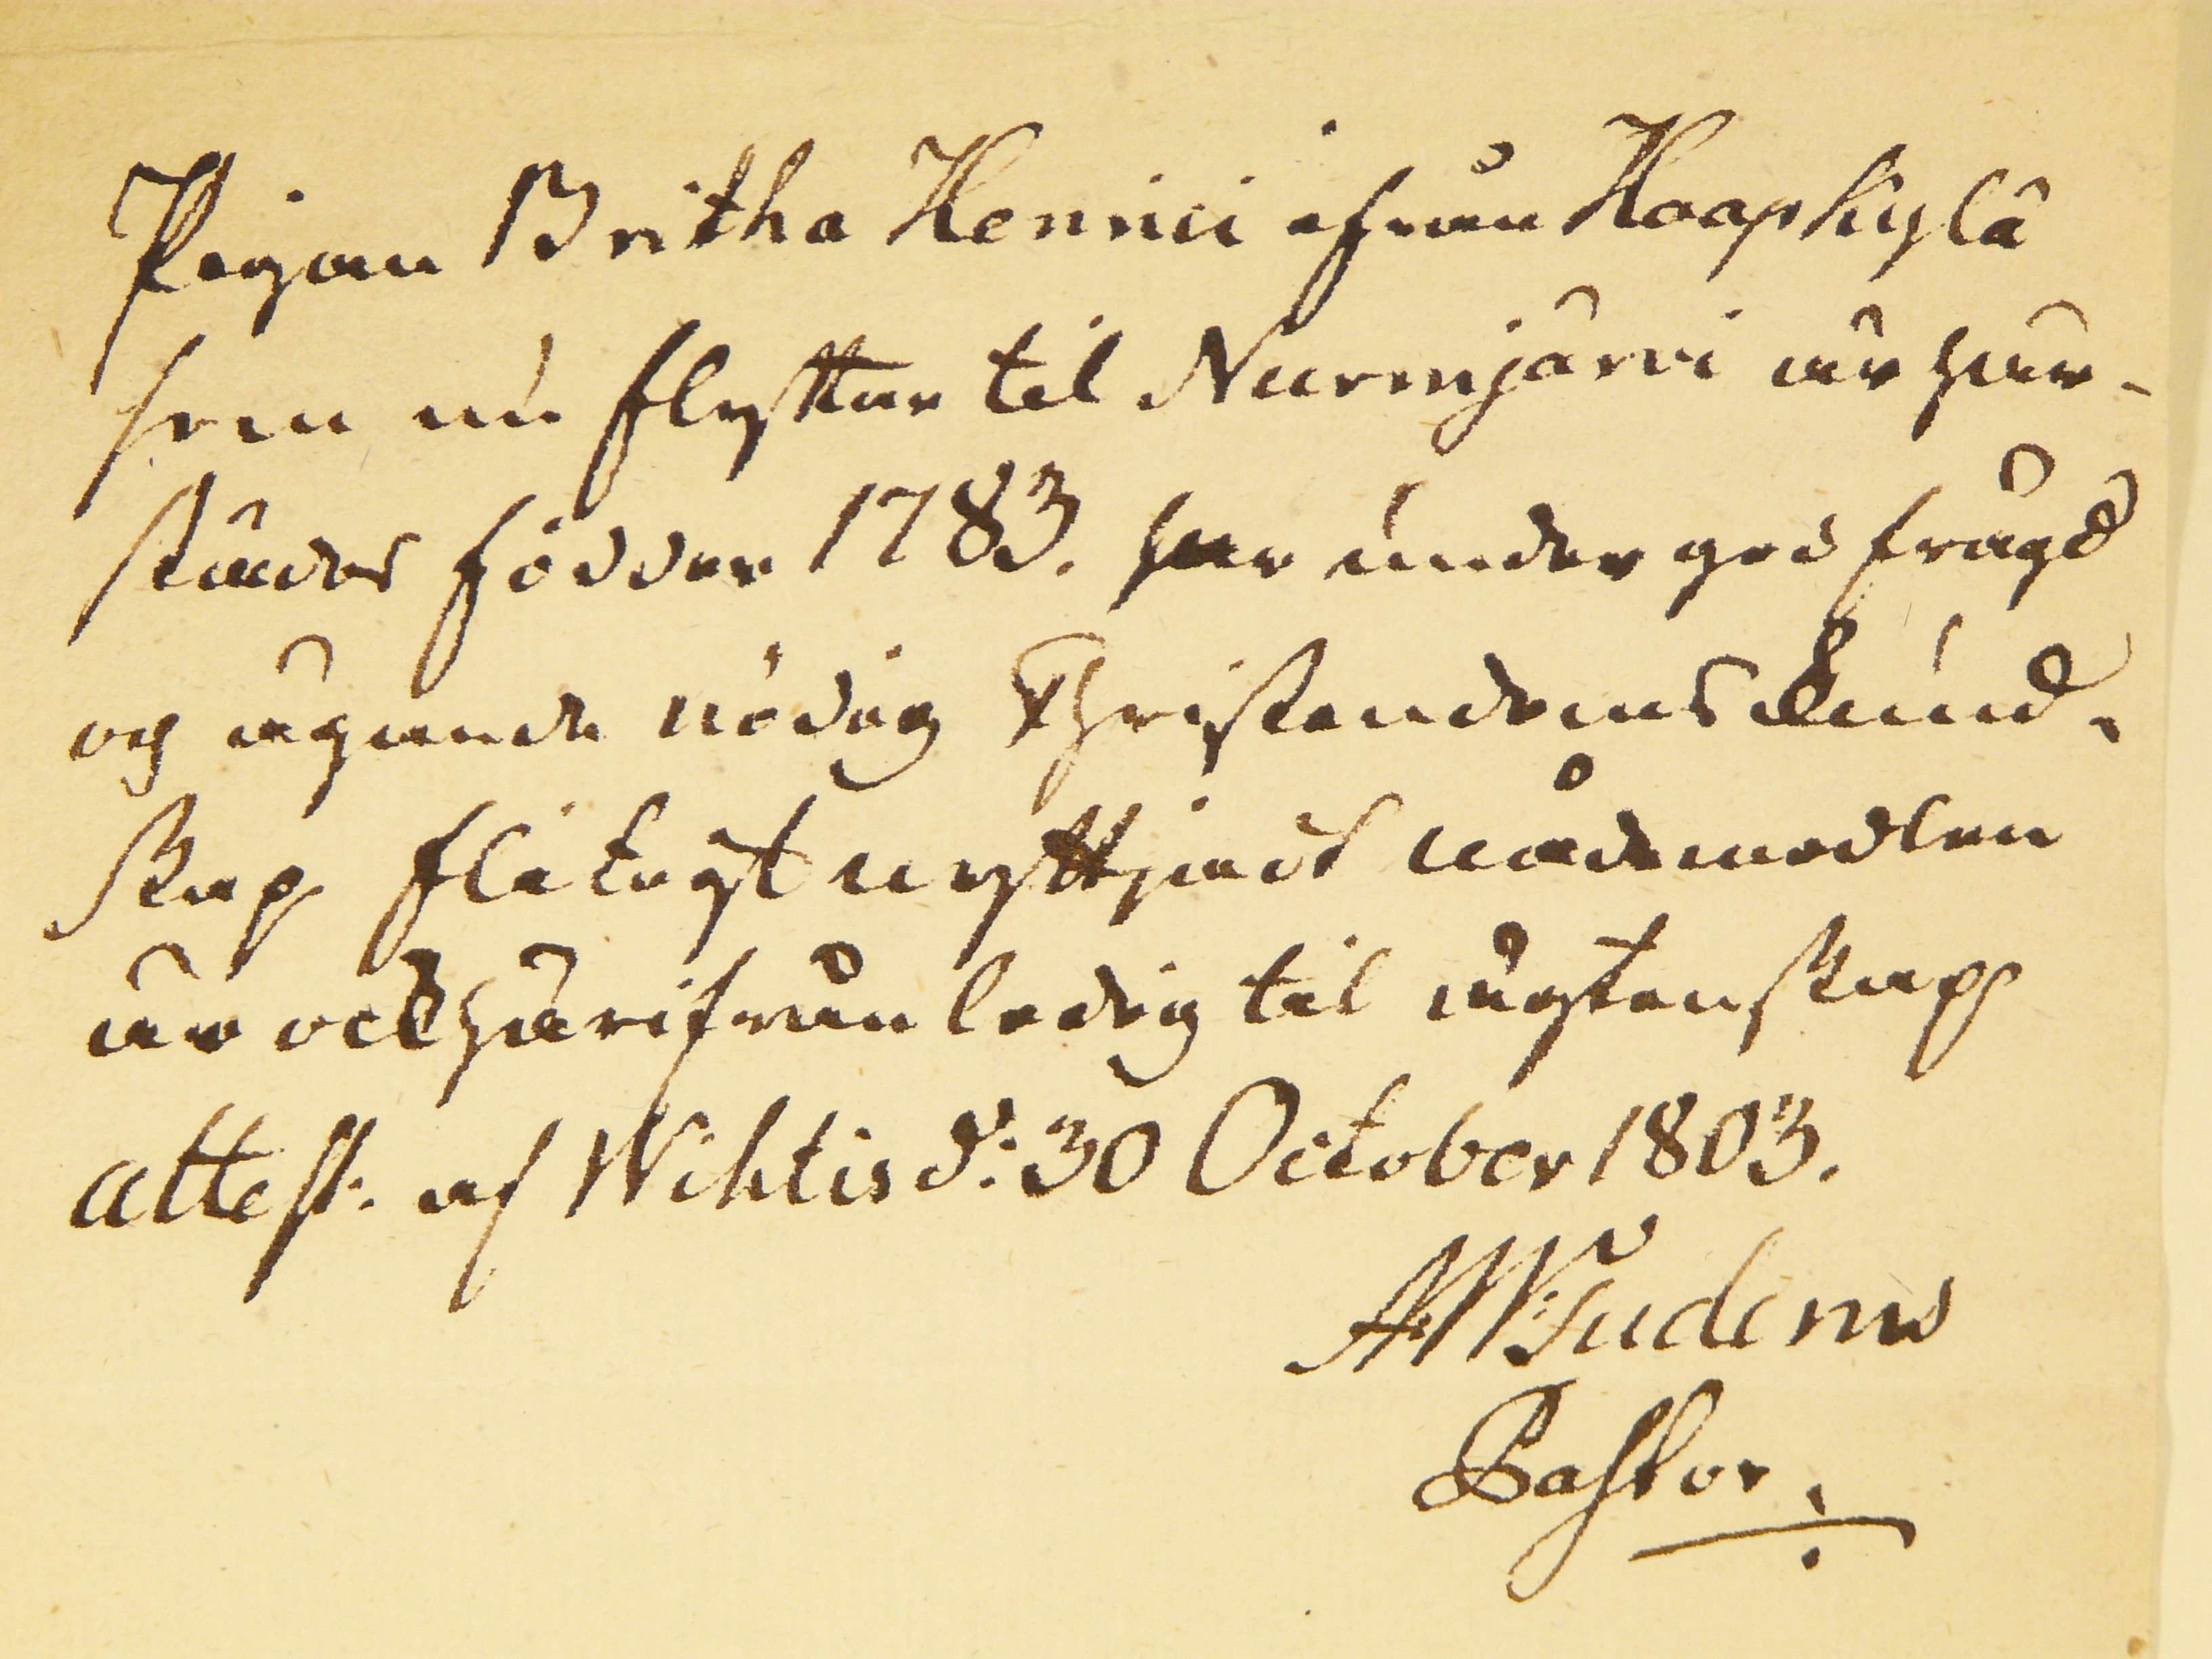 Pigan Britha Henrici ifrån Haapkylä
som nu flyttar til Nurmjärvi är här-
städes födder 1783. har under god frägd
och ägande nödig Christendoms kund-
skap flitigt nyttjadt nådemedlen
är ock härifrån ledig til ägtenskap
attest. af Wihtis d: 30 October 1803.
Pastor.